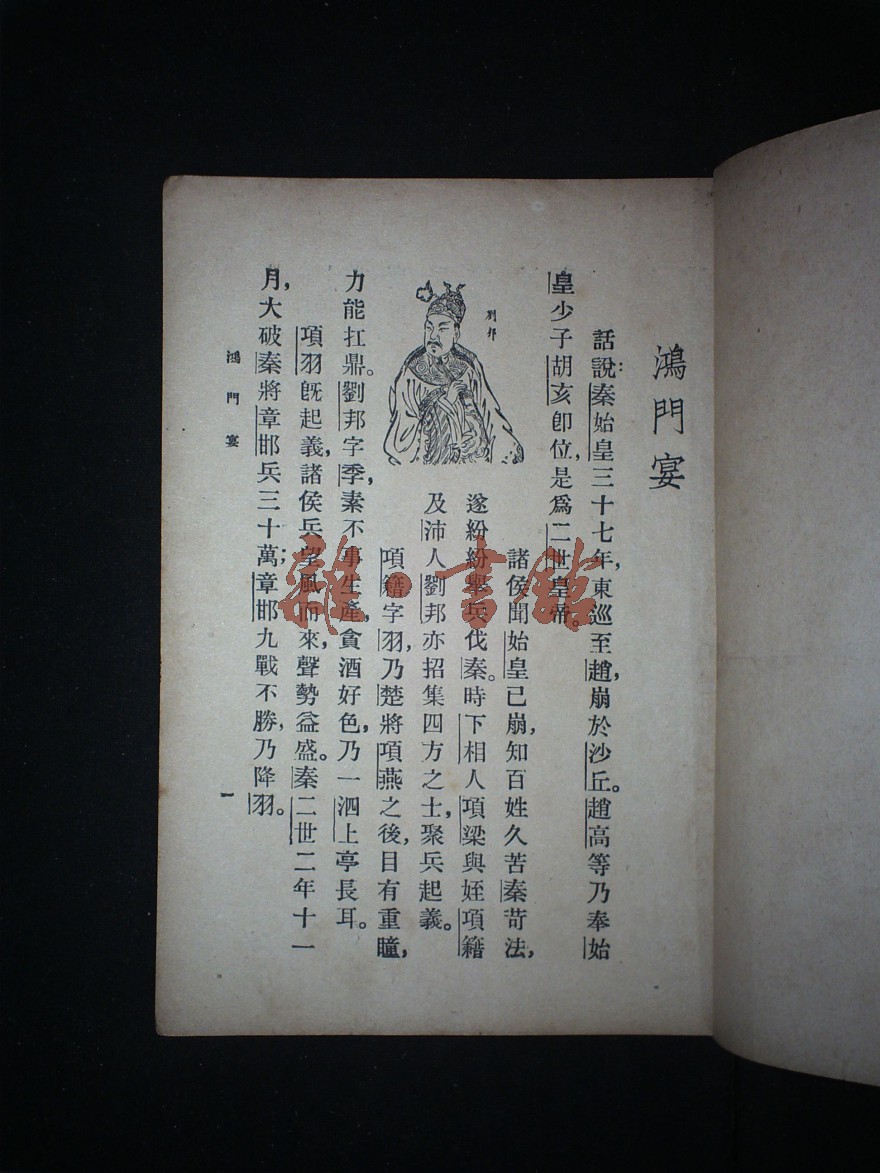 鴻門宴
話說：秦始皇三十七年，東巡至趙，崩於沙丘。趙高等乃奉始
皇少子胡亥卽位，是爲二世皇帝。
劉邦
諸侯聞始皇已崩，知百姓久苦秦苛法，
遂紛紛舉兵伐秦。時下相人項梁與姪項籍
及沛人劉邦亦招集四方之士，聚兵起義。
項籍字羽，乃楚將項燕之後，目有重瞳，
力能扛鼎。劉邦字季，素不事生產，貪酒好色，乃一泗上亭長耳。
項羽旣起義，諸侯兵望風而來，聲勢益盛。秦二世二年十一
月，大破秦將章邯兵三十萬；章邯九戰不勝，乃降羽。
鴻門宴
一
雜·書館